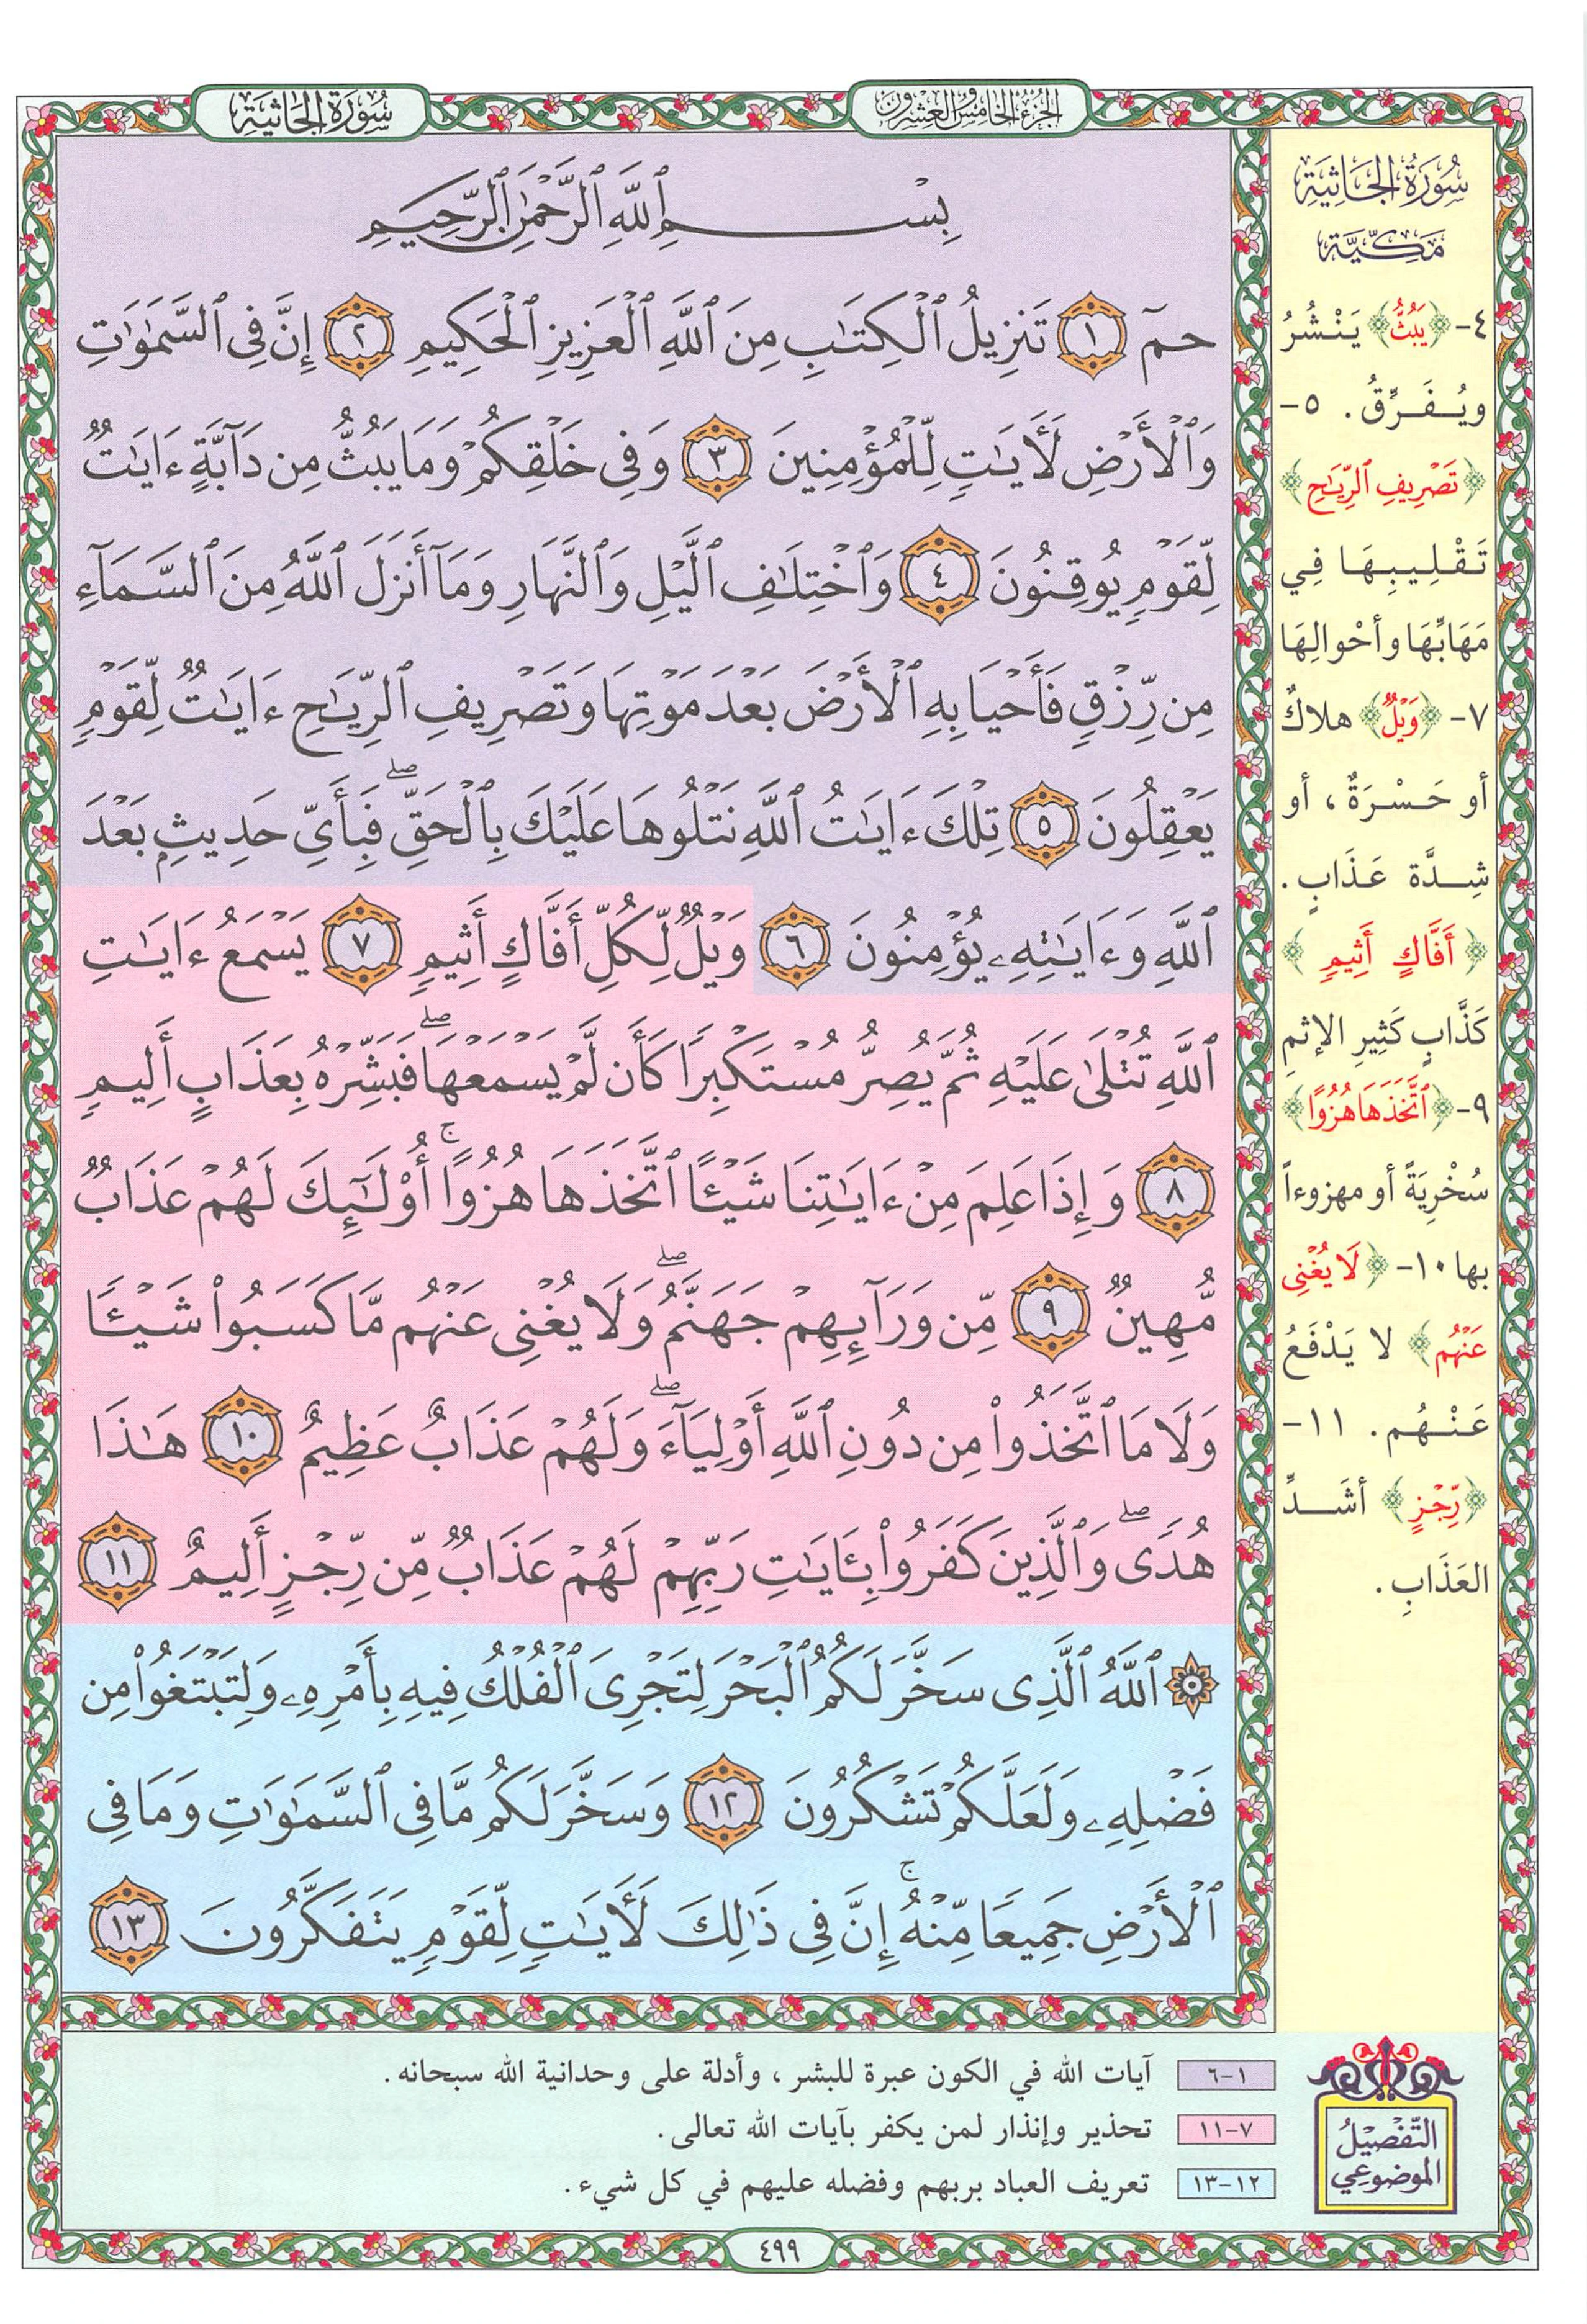 الجزء الخامس والعشرون
سُورَةُ الجَاثِيَةِ
بِسْمِ ٱللَّهِ ٱلرَّحْمَٰنِ ٱلرَّحِيمِ
حمٓ ١ تَنزِيلُ ٱلْكِتَٰبِ مِنَ ٱللَّهِ ٱلْعَزِيزِ ٱلْحَكِيمِ ٢ إِنَّ فِى ٱلسَّمَٰوَٰتِ
وَٱلْأَرْضِ لَـَٔايَٰتٍ لِّلْمُؤْمِنِينَ ٣ وَفِى خَلْقِكُمْ وَمَا يَبُثُّ مِن دَآبَّةٍ ءَايَٰتٌ
لِّقَوْمٍ يُوقِنُونَ ٤ وَٱخْتِلَٰفِ ٱلَّيْلِ وَٱلنَّهَارِ وَمَآ أَنزَلَ ٱللَّهُ مِنَ ٱلسَّمَآءِ
مِن رِّزْقٍ فَأَحْيَا بِهِ ٱلْأَرْضَ بَعْدَ مَوْتِهَا وَتَصْرِيفِ ٱلرِّيَٰحِ ءَايَٰتٌ لِّقَوْمٍ
يَعْقِلُونَ ٥ تِلْكَ ءَايَٰتُ ٱللَّهِ نَتْلُوهَا عَلَيْكَ بِٱلْحَقِّ ۖ فَبِأَىِّ حَدِيثٍۭ بَعْدَ
ٱللَّهِ وَءَايَٰتِهِۦ يُؤْمِنُونَ ٦ وَيْلٌ لِّكُلِّ أَفَّاكٍ أَثِيمٍ ٧ يَسْمَعُ ءَايَٰتِ
ٱللَّهِ تُتْلَىٰ عَلَيْهِ ثُمَّ يُصِرُّ مُسْتَكْبِرًا كَأَن لَّمْ يَسْمَعْهَا ۖ فَبَشِّرْهُ بِعَذَابٍ أَلِيمٍ
٨ وَإِذَا عَلِمَ مِنْ ءَايَٰتِنَا شَيْـًٔا ٱتَّخَذَهَا هُزُوًا ۚ أُو۟لَٰٓئِكَ لَهُمْ عَذَابٌ
مُّهِينٌ ٩ مِّن وَرَآئِهِمْ جَهَنَّمُ ۖ وَلَا يُغْنِى عَنْهُم مَّا كَسَبُوا۟ شَيْـًٔا
وَلَا مَا ٱتَّخَذُوا۟ مِن دُونِ ٱللَّهِ أَوْلِيَآءَ ۖ وَلَهُمْ عَذَابٌ عَظِيمٌ ١٠ هَٰذَا
هُدًى ۖ وَٱلَّذِينَ كَفَرُوا۟ بِـَٔايَٰتِ رَبِّهِمْ لَهُمْ عَذَابٌ مِّن رِّجْزٍ أَلِيمٌ ١١
۞ ٱللَّهُ ٱلَّذِى سَخَّرَ لَكُمُ ٱلْبَحْرَ لِتَجْرِىَ ٱلْفُلْكُ فِيهِ بِأَمْرِهِۦ وَلِتَبْتَغُوا۟ مِن
فَضْلِهِۦ وَلَعَلَّكُمْ تَشْكُرُونَ ١٢ وَسَخَّرَ لَكُم مَّا فِى ٱلسَّمَٰوَٰتِ وَمَا فِى
ٱلْأَرْضِ جَمِيعًا مِّنْهُ ۚ إِنَّ فِى ذَٰلِكَ لَـَٔايَٰتٍ لِّقَوْمٍ يَتَفَكَّرُونَ ١٣
سُورَةُ الجَاثِيَةِ
مَكِّيَّة
٤- ﴿يَبُثُّ﴾ يَنْشُرُ
ويُفَرِّقُ. ٥-
﴿تَصْرِيفِ ٱلرِّيَٰحِ﴾
تَقْلِيبِهَا فِي
مَهَابِّهَا وأحْوالِهَا
٧- ﴿وَيْلٌ﴾ هلاكٌ
أو حَسْرَةٌ، أو
شِدَّة عَذَابٍ.
﴿أَفَّاكٍ أَثِيمٍ﴾
كَذَّابٍ كَثِيرِ الإثمِ
٩- ﴿ٱتَّخَذَهَا هُزُوًا﴾
سُخْرِيَةً أو مهزوءاً
بها ١٠- ﴿لَا يُغْنِى
عَنْهُم﴾ لا يَدْفَعُ
عَنْهُم. ١١-
﴿رِّجْزٍ﴾ أشَدِّ
العَذَابِ.
التَّفْصِيْلُ
الموْضُوعِي
١-٦ آيات الله في الكون عبرة للبشر، وأدلة على وحدانية الله سبحانه.
٧-١١ تحذير وإنذار لمن يكفر بآيات الله تعالى.
١٢-١٣ تعريف العباد بربهم وفضله عليهم في كل شيء.
٤٩٩